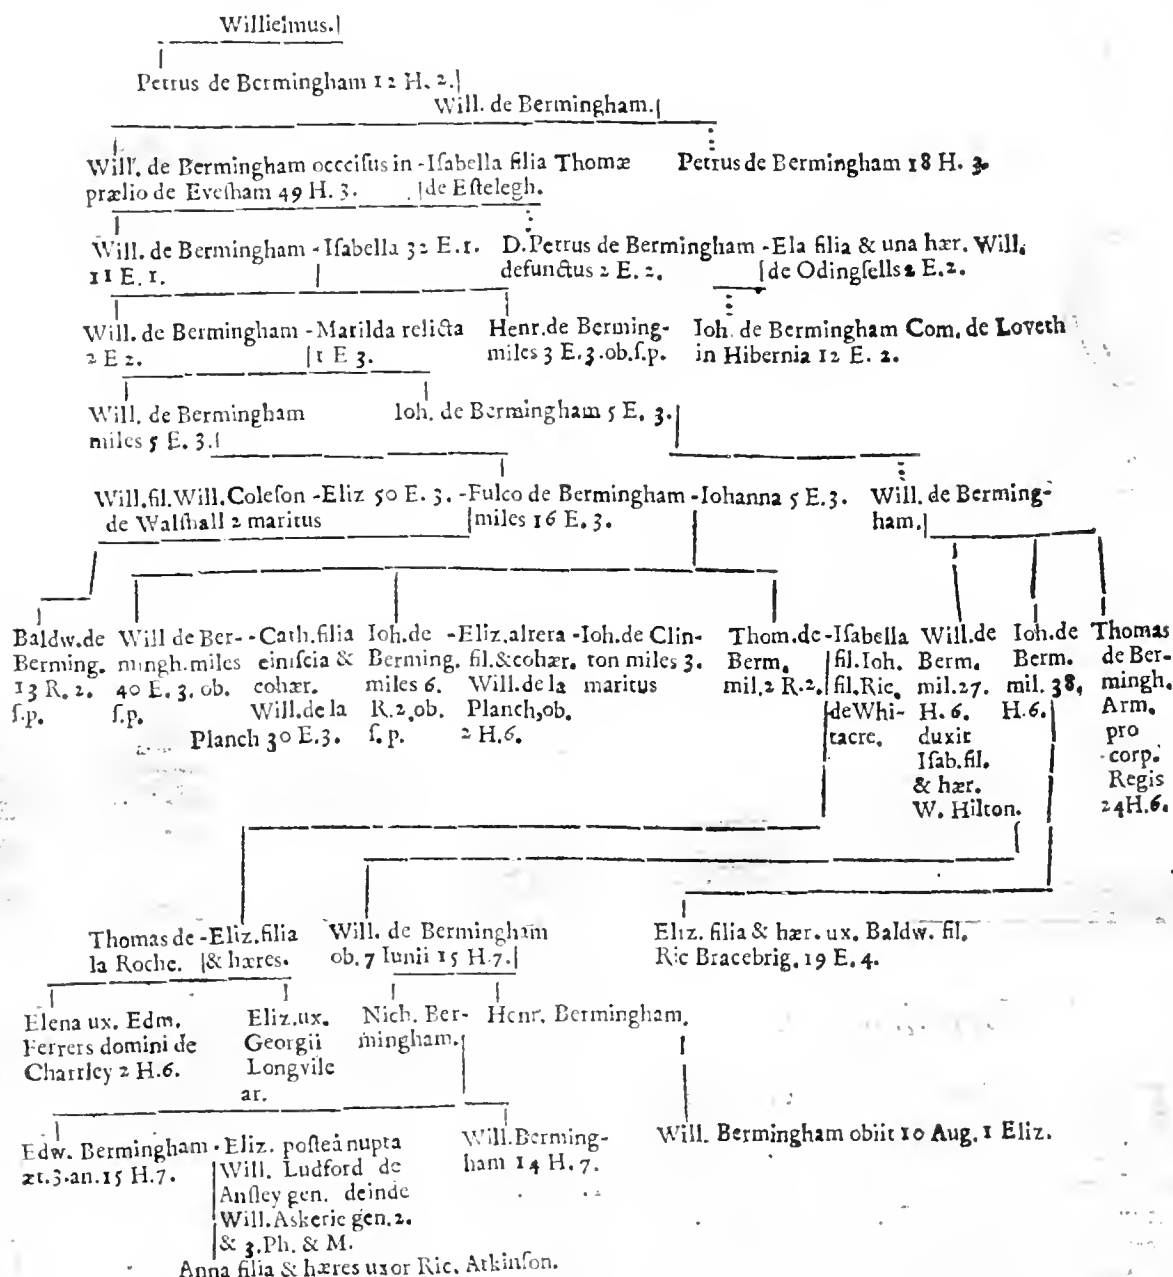 Willielmus.
Petrus de Bermingham 12 H. 2.
Will. de Bermingham.
Will. de Bermingham occcisus in - Isabella filia Thomæ
prælio de Evesham 49 H. 3. de Estelegh.
Petrus de Bermingham 18 H. 3.
Will. de Bermingham - Isabella 32 E.1.
11 E. 1.
D. Petrus de Bermingham - Ela filia & una hær. Will.
defunctus 2 E. 2. de Odingsells 2 E.2.
Will. de Bermingham - Matilda relicta
2 E 2. 1 E 3.
Henr. de Berming-
miles 3 E. 3. ob. s.p.
Ioh. de Bermingham Com. de Loveth
in Hibernia 12 E. 2.
Will. de Bermingham
miles 5 E. 3.
Ioh. de Bermingham 5 E. 3.
Will. fil. Will. Coleson - Eliz 50 E. 3. - Fulco de Bermingham - Iohanna 5 E.3.
de Walshall 2 maritus miles 16 E. 3.
Will. de Berming-
ham.
Baldw. de
Berming.
13 R. 2.
s.p.
Will de Ber-
mingh. miles
40 E. 3. ob.
s.p.
- Cath. filia
einiscia &
cohær.
Will. de la
Planch 30 E.3.
Ioh. de
Berming.
miles 6.
R. 2, ob.
s. p.
- Eliz. altera
fil. & cohær.
Will. de la
Planch, ob.
2 H.6.
- Ioh. de Clin-
ton miles 3.
maritus
Thom. de
Berm.
mil. 2 R. 2.
- Isabella
fil. Ioh.
fil. Ric.
de Whi-
tacre.
Will. de
Berm.
mil. 27.
H. 6.
duxit
Isab. fil.
& hær.
W. Hilton.
Ioh. de
Berm.
mil. 38.
H.6.
Thomas
de Ber-
mingh.
Arm.
pro
corp.
Regis
24 H.6.
Thomas de - Eliz. filia
la Roche. & hæres.
Will. de Bermingham
ob. 7 Iunii 15 H.7.
Eliz. filia & hær. ux. Baldw. fil.
Ric Bracebrig. 19 E. 4.
Elena ux. Edm.
Ferrers domini de
Chartley 2 H.6.
Eliz. ux.
Georgii
Longvile
ar.
Nich. Ber-
mingham.
Henr. Bermingham.
Edw. Bermingham
æt. 3. an. 15 H.7.
- Eliz. posteà nupta
Will. Ludford de
Ansley gen. deinde
Will. Askerie gen. 2.
& 3. Ph. & M.
Will. Berming-
ham 14 H. 7.
Will. Bermingham obiit 10 Aug. 1 Eliz.
Anna filia & hæres uxor Ric. Atkinson.